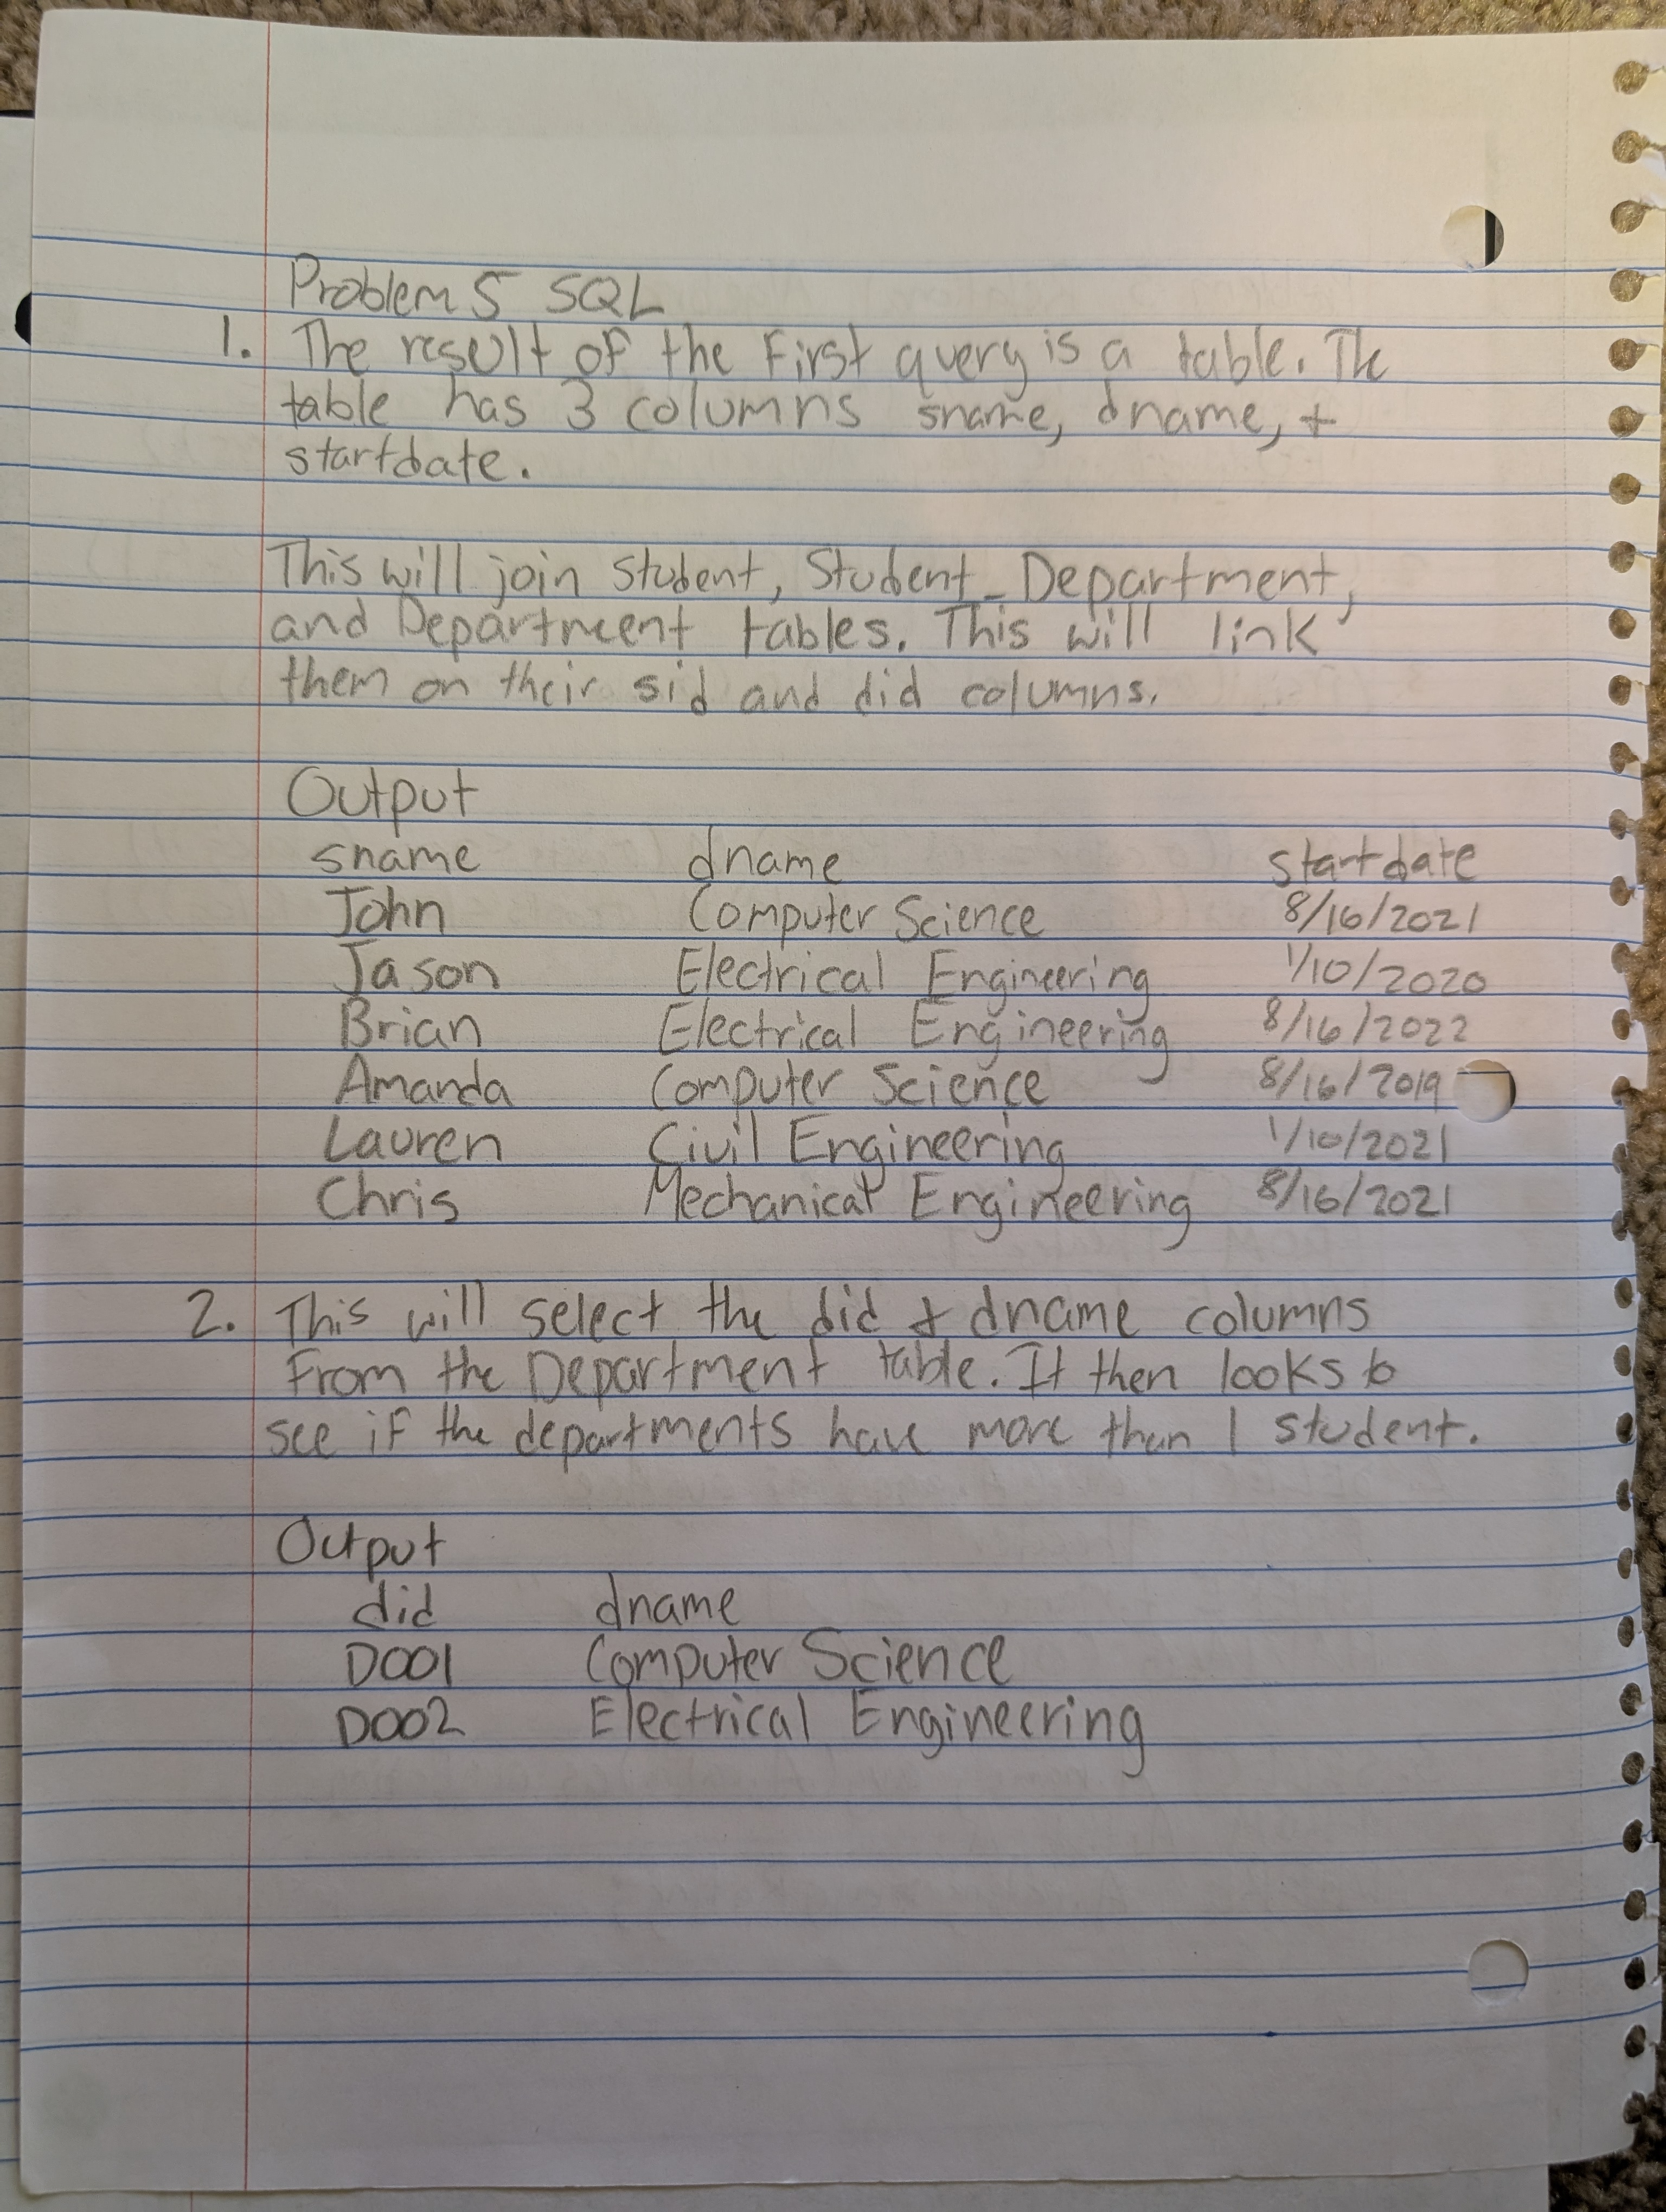 Problem 5 SQL
1. The result of the First query is a table. The
table has 3 columns sname, dname, +
startdate.
This will join Student, Student_Department,
and Department tables. This will link
them on their sid and did columns.
Output
sname dname startdate
John Computer Science 8/16/2021
Jason Electrical Engineering 1/10/2020
Brian Electrical Engineering 8/16/2022
Amanda Computer Science 8/16/2019
Lauren Civil Engineering 1/10/2021
Chris Mechanical Engineering 8/16/2021
2. This will select the did & dname columns
From the Department table. It then looks to
see if the departments have more than 1 student.
Output
did dname
D001 Computer Science
D002 Electrical Engineering